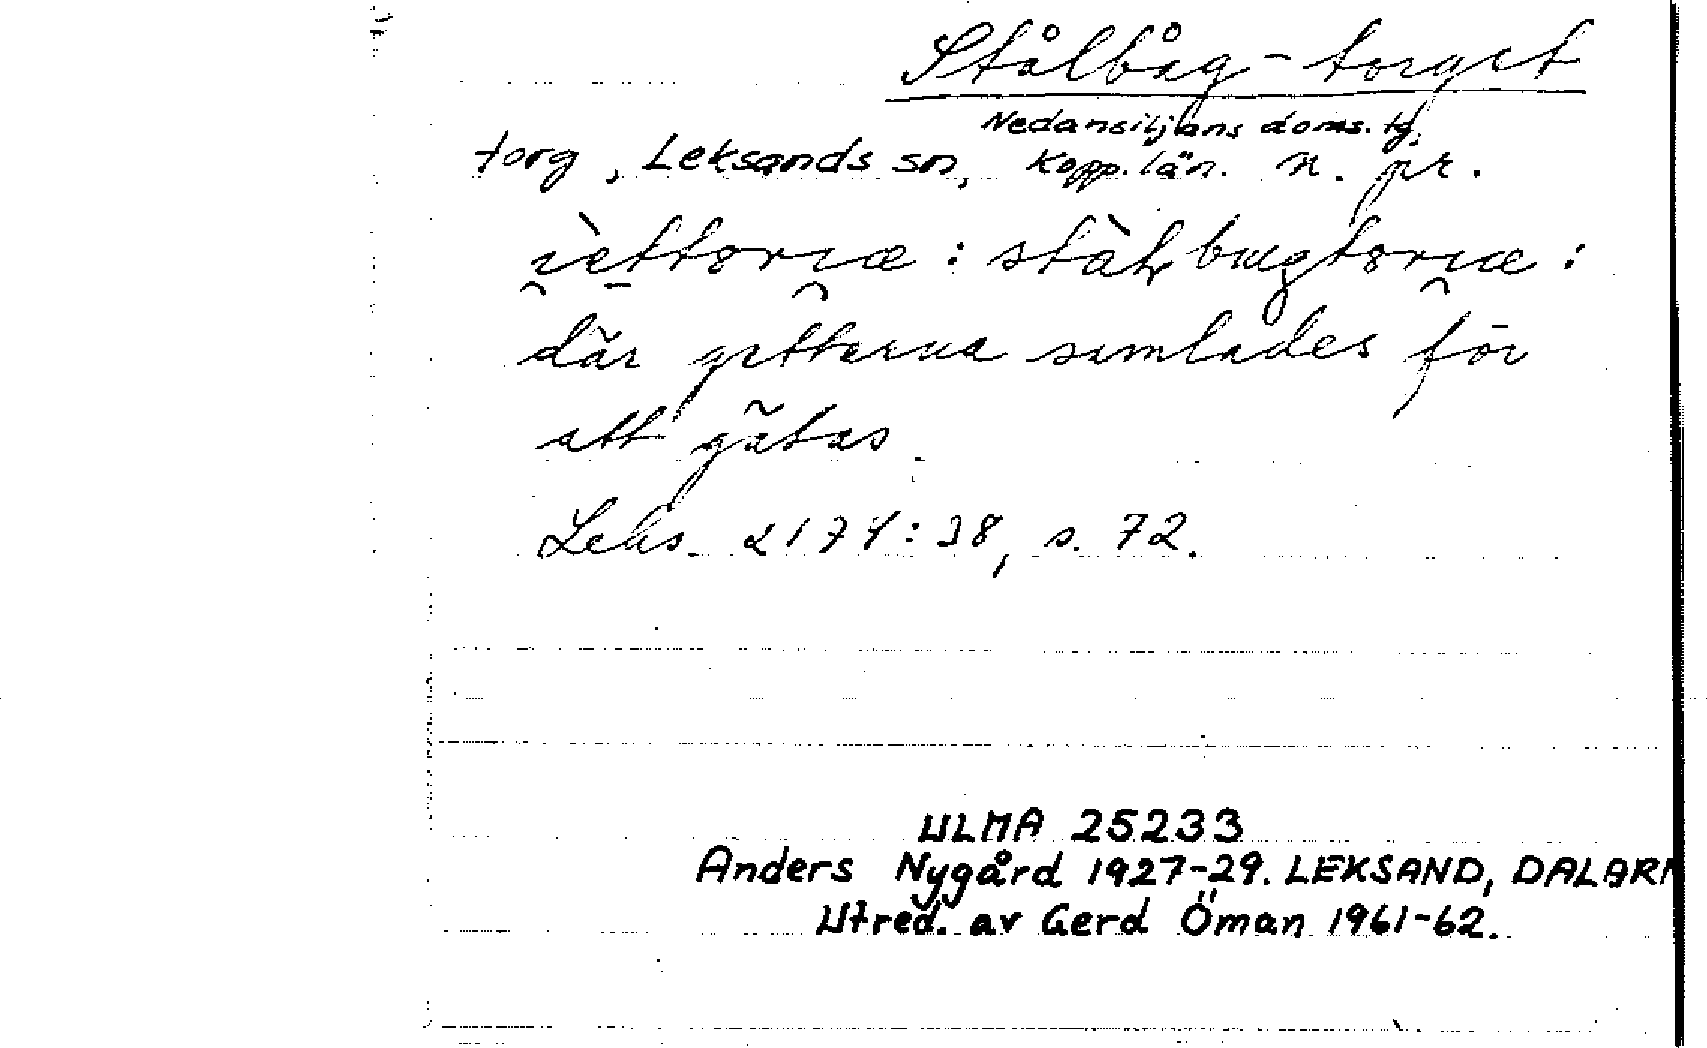 Stålbåg-torget
Nedansiljans doms. tg.
torg, Leksands sn, Kopp. län. n. pr.
där getterna samlades för
att gätas
Leks. 2174:38, s. 72.
ULMA 25233
Anders Nygård 1927-29. LEKSAND, DALARN
Utred. av Gerd Öman 1961-62.